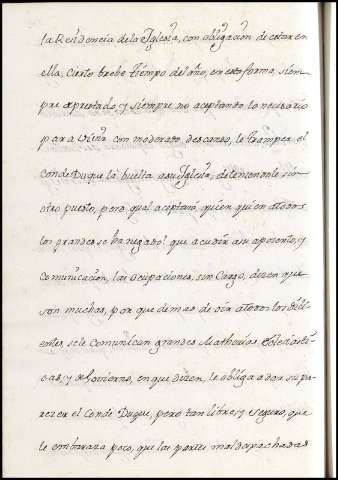 la Residencia de la Iglesia, con obligacion de estar en
ella, cierto brebe tiempo del año, en esta forma, siem-
pre aprestado, y siempre, no aceptando lo necesario
para vivir con moderato, descanso, le trampea el
Conde Duque la buelta a su Iglesia, deteniendole sin
otro puesto, pero qual aceptará, quien quien a todos
los grandes se ha negado! que acudir a su aposento, y
comunicacion, las ocupaciones, son Cargo, dizen que
son muchas, por que demas de oir a todos los doli-
entes, se le comunican grandes Matherias, Eclesiasti-
cas, y de Govierno, en que dizen, le obliga a dar su pa-
rezer el Conde Duque, pero tan libre, y seguro, que
le embaraza poco, que las partes mal despachadas